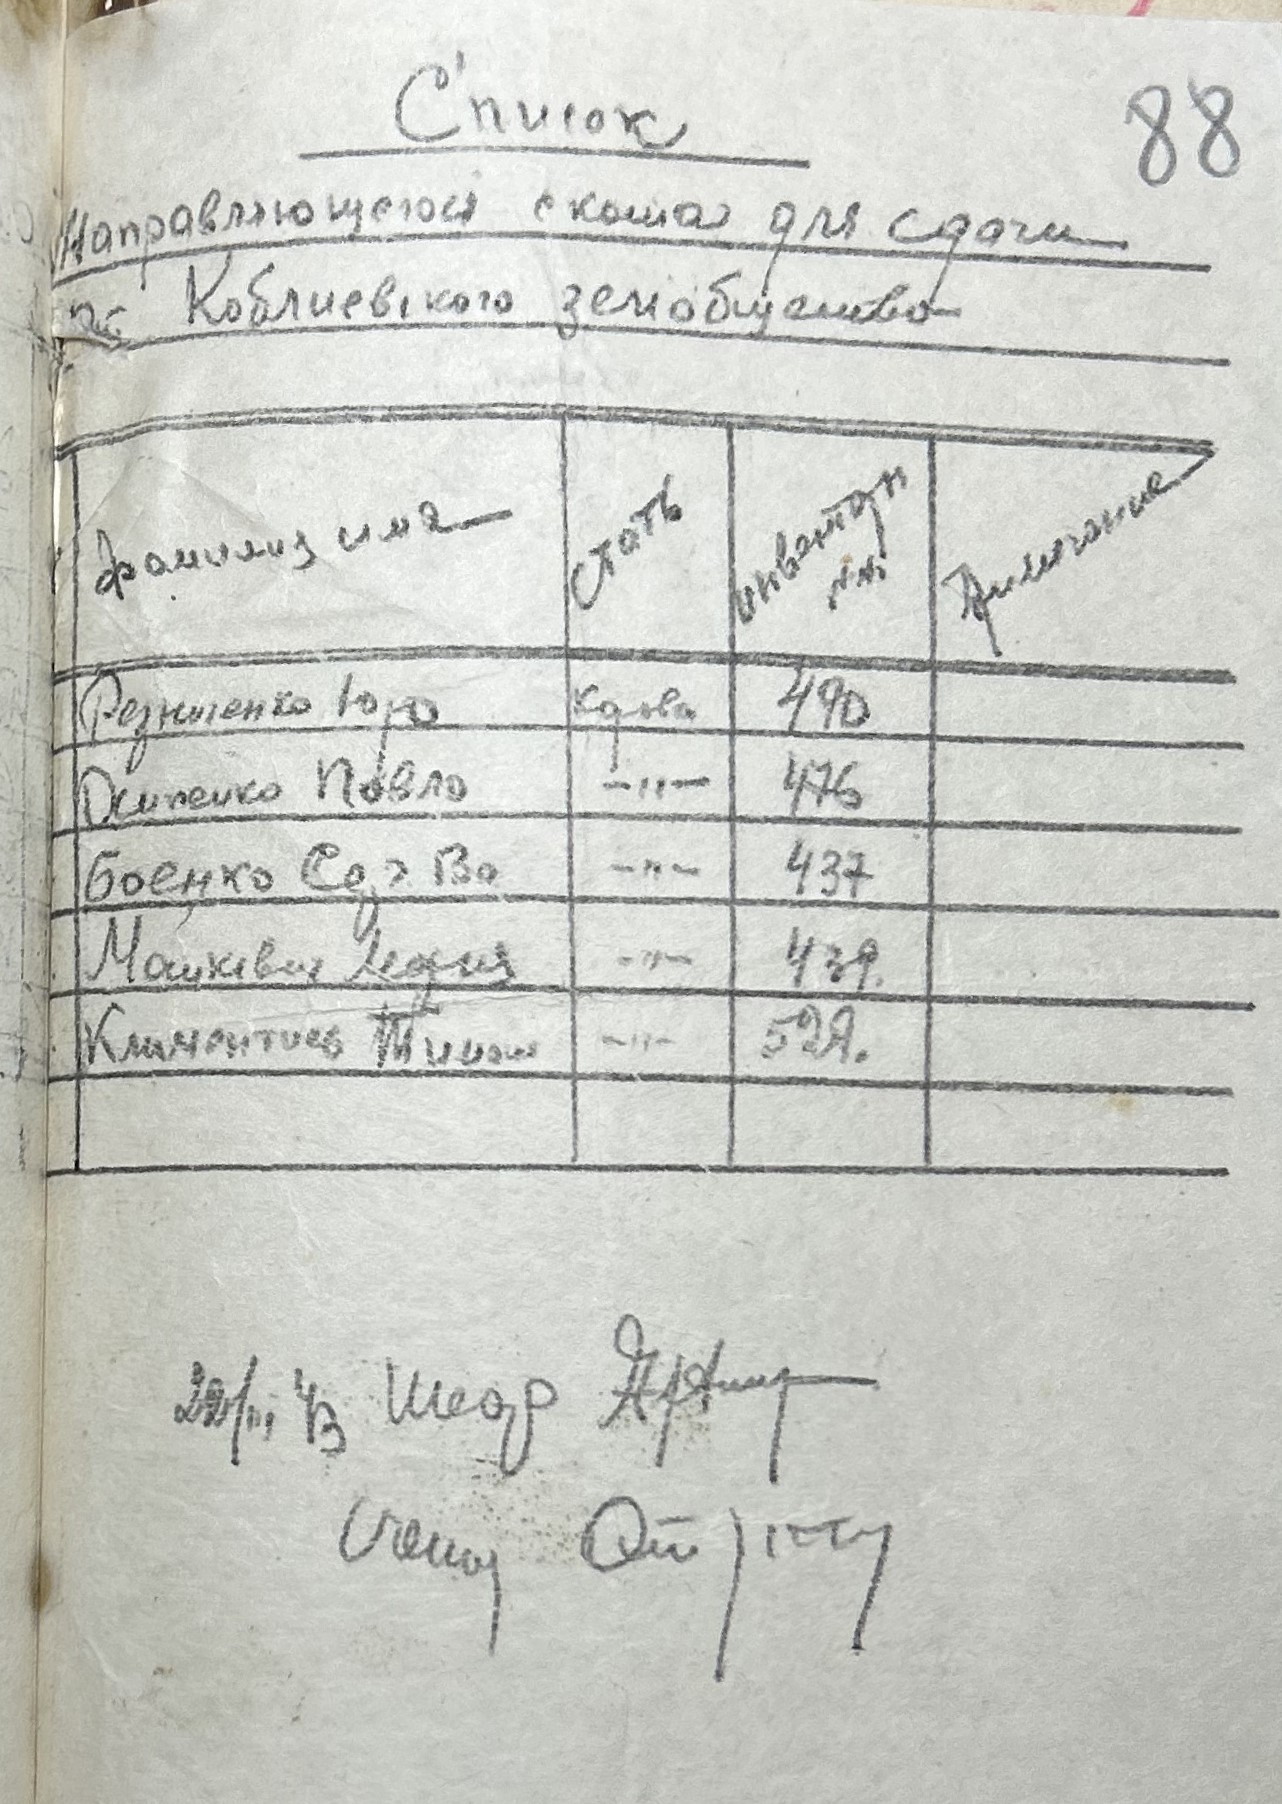 88
Список
Направляющегося скота для сдачи
по Коблиевского земобщество
Фамилия имя стать инвентарн №№ Примечание
Резниченко Юро корова 490
Осипенко Павло -"- 476
Боенко Сд Ва -"- 437
Мацкевич Лидия -"- 439.
Климентиев Тимош -"- 529.
22/III 43